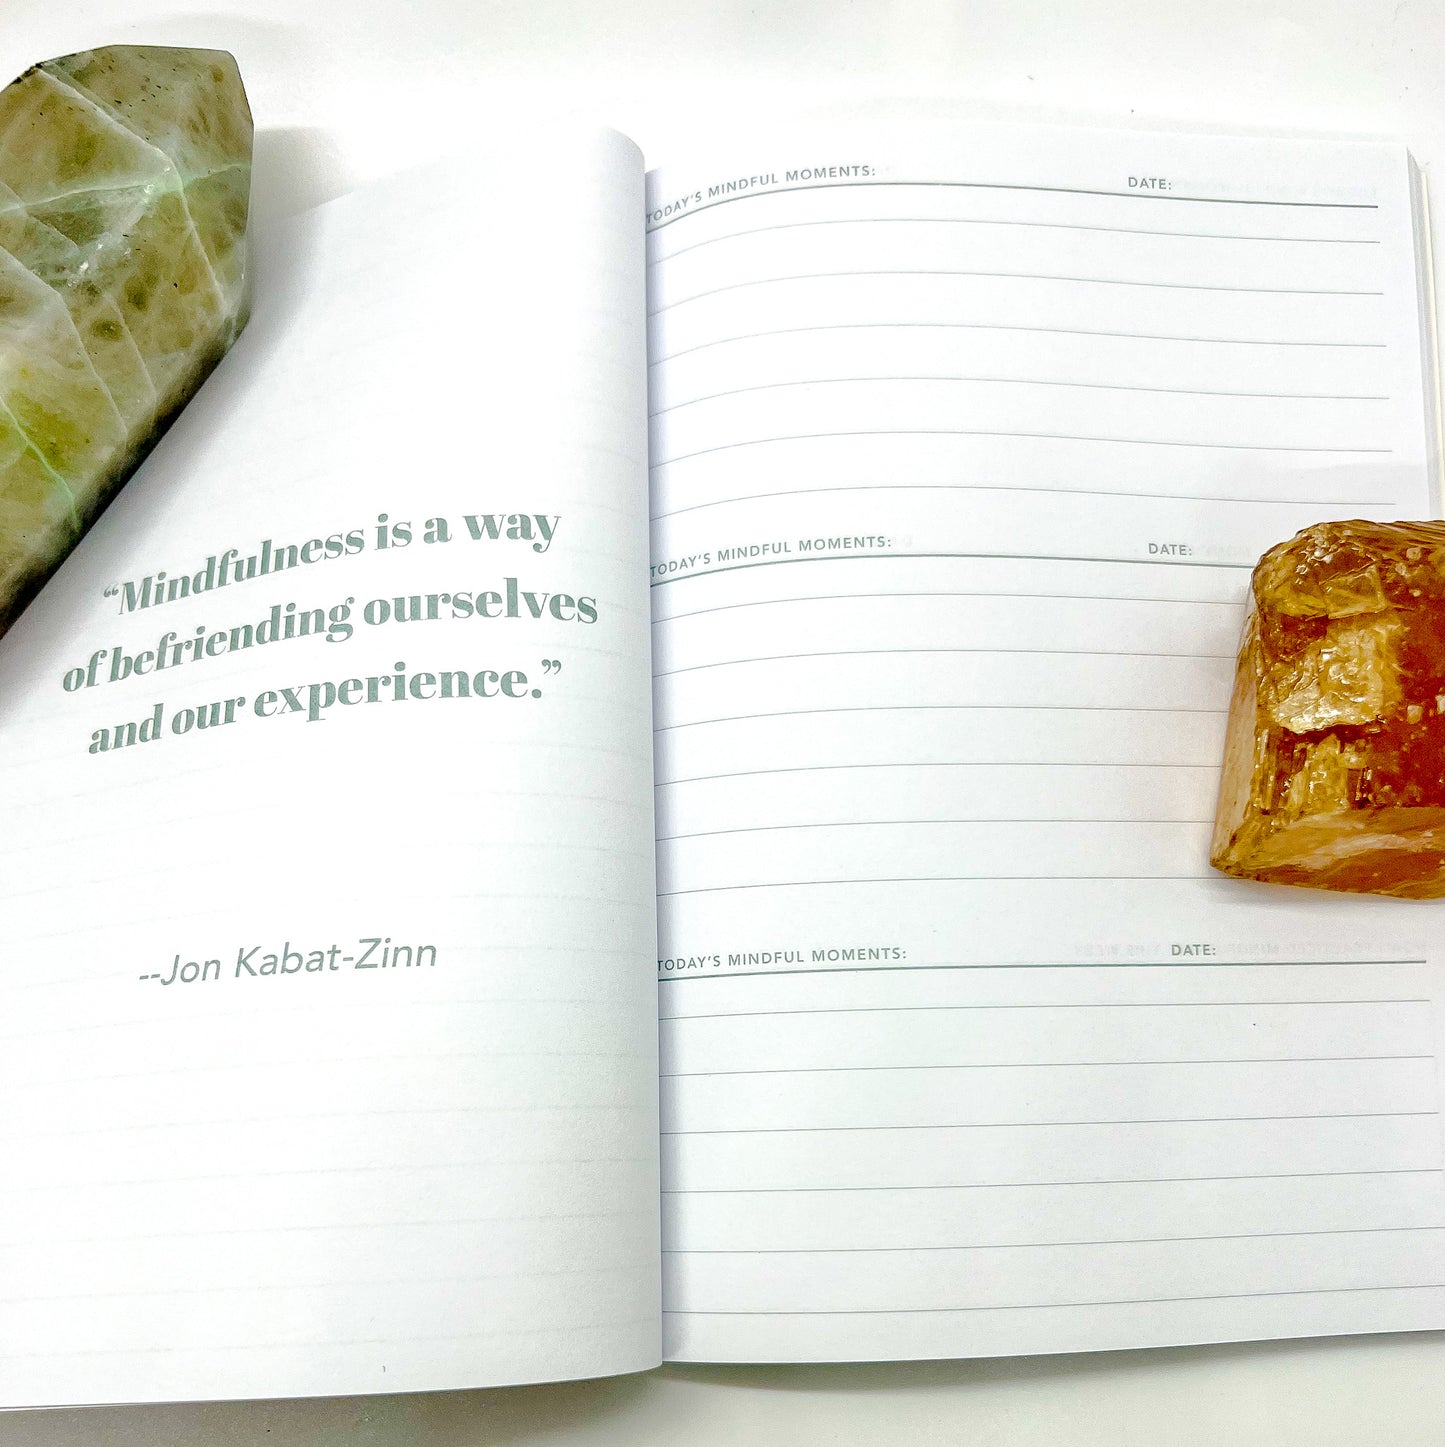 “Mindfulness is a way
of befriending ourselves
and our experience.”
--Jon Kabat-Zinn
TODAY’S MINDFUL MOMENTS: DATE:
TODAY’S MINDFUL MOMENTS: DATE:
TODAY’S MINDFUL MOMENTS: DATE: